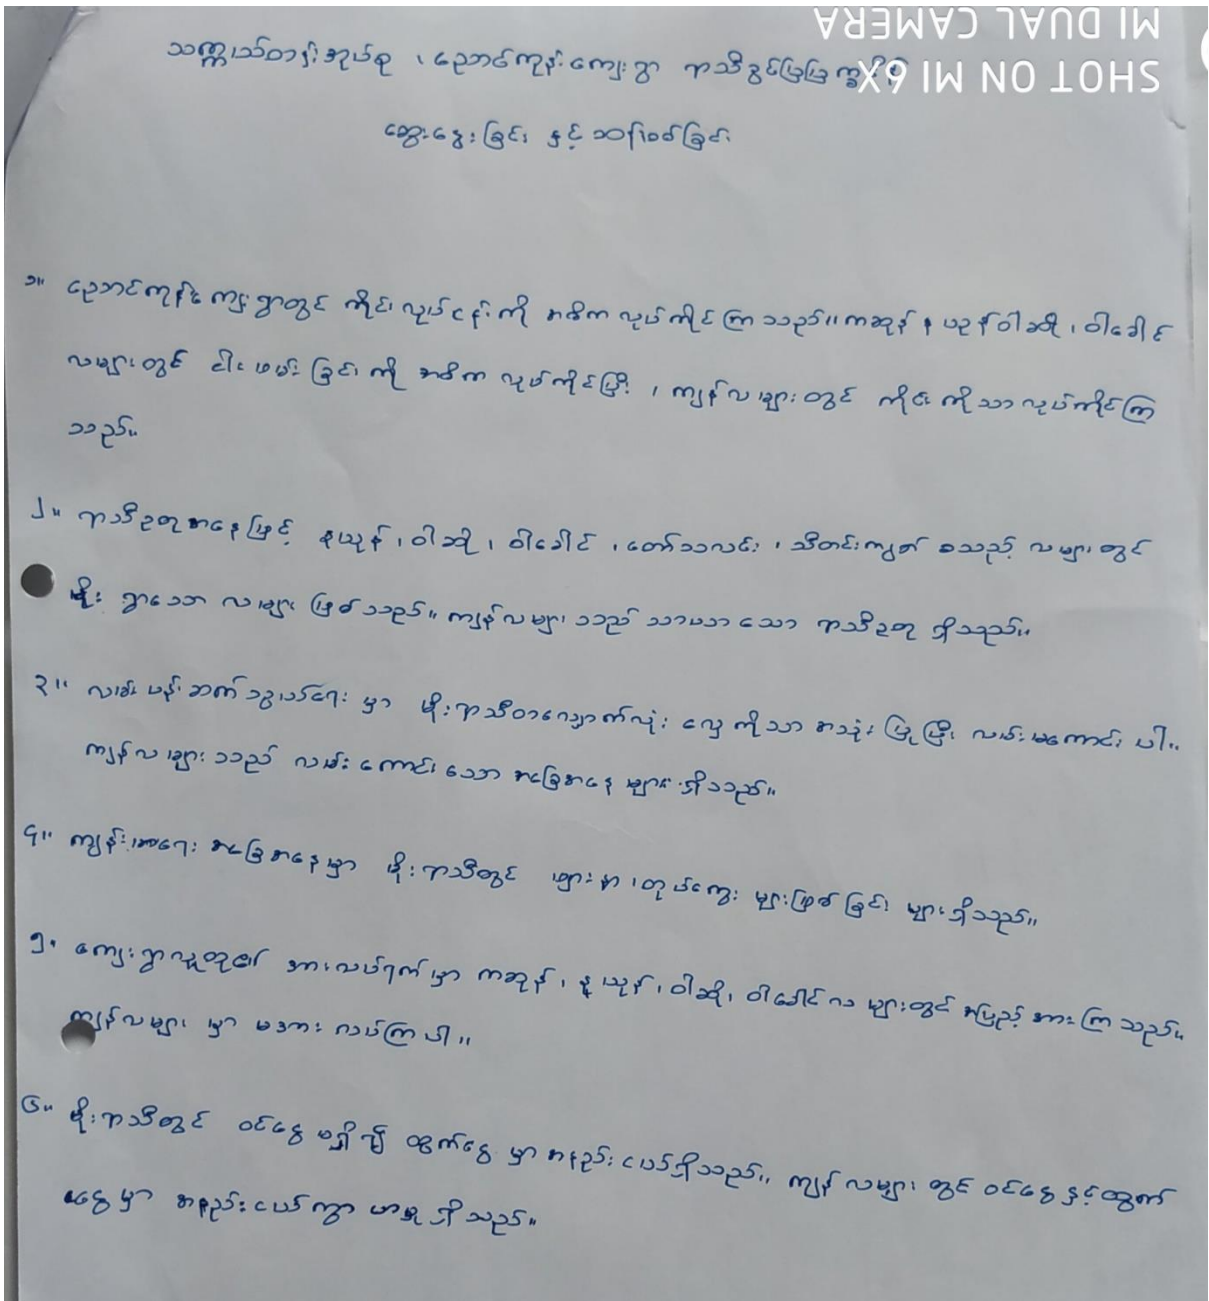 SHOT ON MI 6X
MI DUAL CAMERA
သက္ကယ်တန်းအုပ်စု ၊ ညောင်ကုန်းကျေးရွာ ရာသီခွင်ပြ
ဆွေးနွေးခြင်း နှင့် ဆန်းစစ်ခြင်း
၁။ ညောင်ကုန်းကျေးရွာတွင် ကိုင်းလုပ်ငန်းကို အဓိက လုပ်ကိုင်ကြသည်။ ကဆုန် နယုန် ဝါဆို ၊ ဝါခေါင်
လများတွင် ငါးဖမ်းခြင်းကို အဓိက လုပ်ကိုင်ပြီး ၊ ကျန်လများတွင် ကိုင်းကိုသာလုပ်ကိုင်ကြ
သည်။
၂။ ရာသီဥတုအနေဖြင့် နယုန် ၊ ဝါဆို ၊ ဝါခေါင် ၊ တော်သလင်း ၊ သီတင်းကျွတ် စသည့် လများတွင်
မိုး ရွာသော လများ ဖြစ်သည်။ ကျန်လများသည် သာမသာသော ရာသီဥတု ရှိသည်။
၃။ လမ်းပန်းဆက်သွယ်ရေး မှာ မိုးရာသီတလျှောက်လုံး လှေကိုသာ အသုံးပြုပြီး လမ်းမကောင်းပါ။
ကျန်လများသည် လမ်းကောင်းသော အခြေအနေ များ ရှိသည်။
၄။ ကျန်းမာရေး အခြေအနေမှာ မိုးရာသီတွင် ဖျားနာ ၊ တုပ်ကွေး များဖြစ်ခြင်း များရှိသည်။
၅။ ကျေးရွာလူထု၏ အားလပ်ရက်မှာ ကဆုန် ၊ နယုန် ၊ ဝါဆို ၊ ဝါခေါင်လ များတွင် အပြည့်အားကြသည်။
ကျန်လများ မှာ မအားလပ်ကြပါ။
၆။ မိုးရာသီတွင် ဝင်ငွေ မရှိ၍ ထွက်ငွေ မှာ အနည်းငယ်ရှိသည်။ ကျန်လများ တွင် ဝင်ငွေနှင့်ထွက်
ငွေမှာ အနည်းငယ်ကွာဟမှု ရှိသည်။